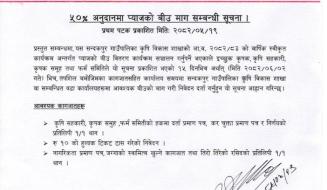 ५०% अनुदानमा प्याजको बीउ माग सम्बन्धी सूचना ।
प्रथम पटक प्रकाशित मितिः २०८२/०५/१९
प्रस्तुत सम्बन्धमा, यस सन्दकपुर गाउँपालिका कृषि विकास शाखाको आ.व. २०८२/८३ को वार्षिक स्वीकृत
कार्यक्रम अन्तर्गत प्याजको बीउ वितरण कार्यक्रम सञ्चालन गर्नुपर्ने भएकाले इच्छुक कृषक, कृषि सहकारी,
कृषक समूह तथा फर्म समितिले यो सूचना प्रकाशित भएको १५ दिनभित्र अर्थात् (मिति २०८२/०६/०२
गते) भित्र, तपशिल बमोजिमका कागजातसहित कार्यालय समयमा सन्दकपुर गाउँपालिका कृषि विकास शाखा
वा सम्बन्धित वडा कार्यालयहरूमा आवश्यक बीउको माग गरी निवेदन दर्ता गर्नुहुन यो सूचना जाहान गरिन्छ।
आवश्यक कागजातहरू
कृषि सहकारी, कृषक समूह ,फर्म समितिको हकमा दर्ता प्रमाण पत्र, कर चुक्ता प्रमाण पत्र र निर्णयको
प्रतिलिपी १/१ थान ।
रु १० को हुलाक टिकट टाँस गरेको निवेदन ।
नागरिकता प्रमाण पत्र,जग्गाको स्वामित्व खुल्ने कागजात तथा तिरो तिरेको रसिदको प्रतिलिपी १/१
थान ।